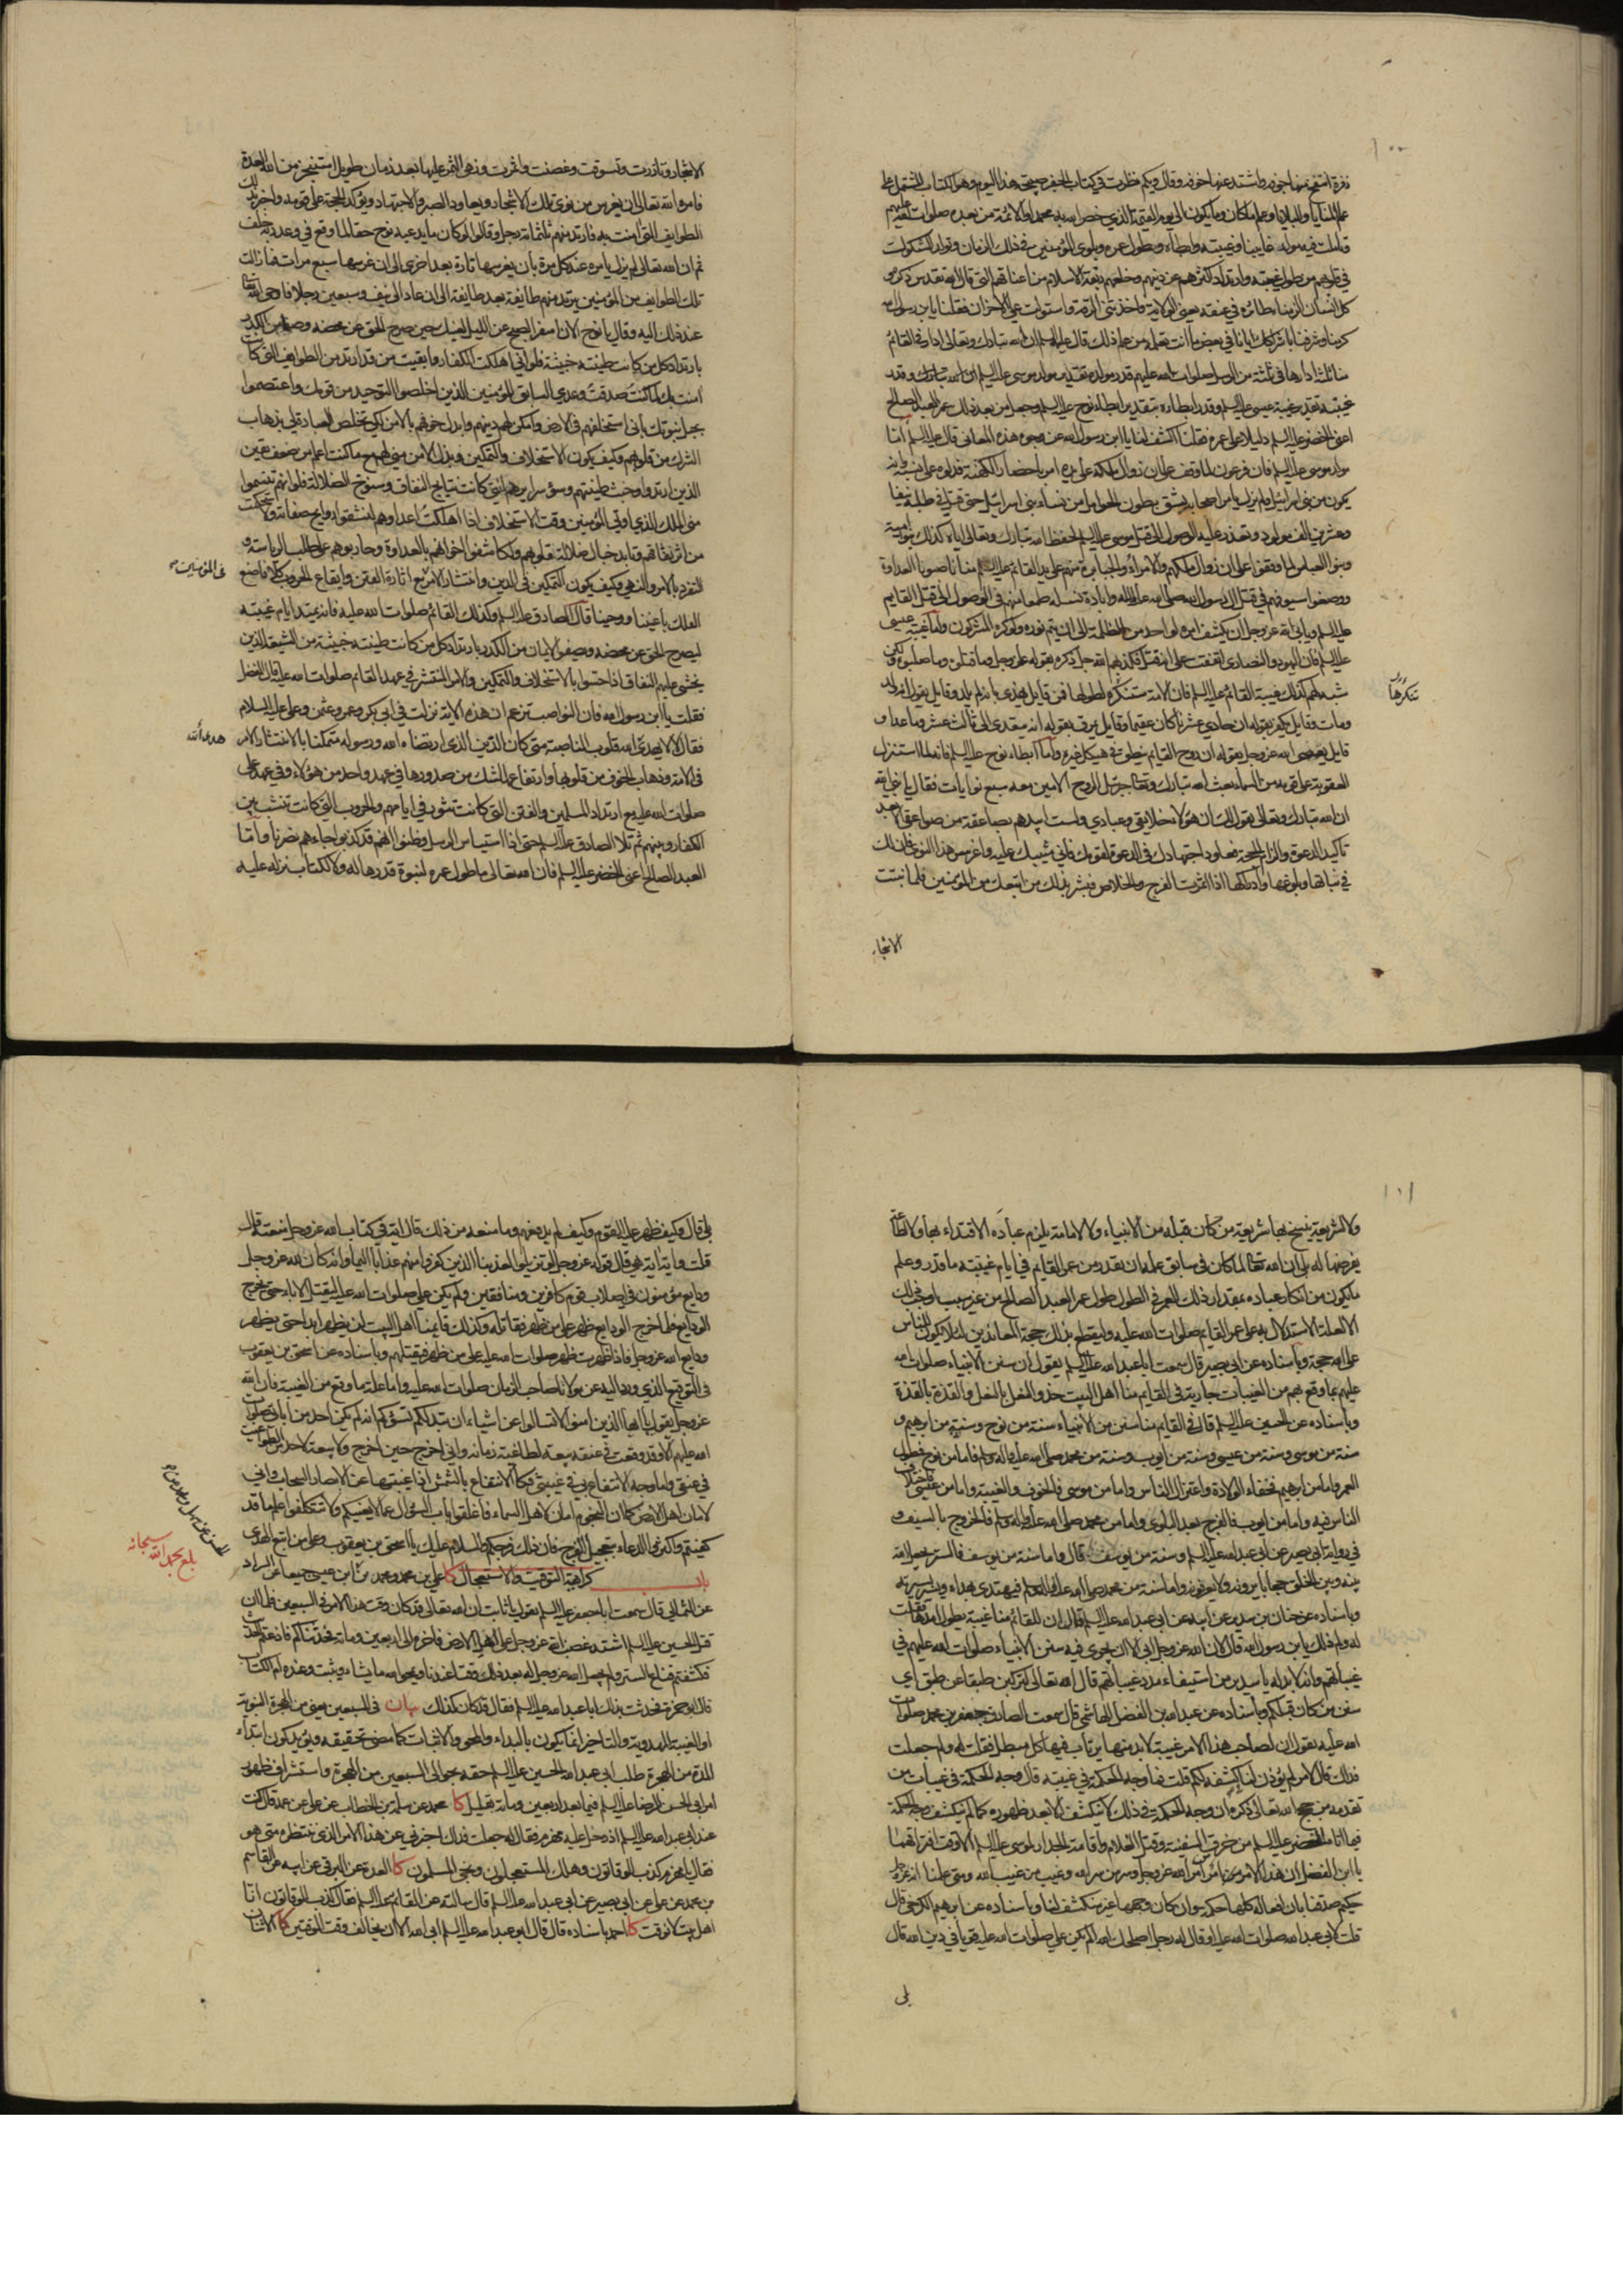 ١٠٠
زفرة انتفخ منها جوفه واشتد عنها خوفه وقال ويلكم نظرت في كتاب الجفر صبيحة هذا اليوم وهو الكتاب المشتمل على
علم المنايا والبلايا وعلم ما كان وما يكون الى يوم القيمة الذي خص الله به محمدا والائمة من بعده صلوات الله عليهم
تاملت فيه مولد غايبنا وغيبته وابطاءه وطول عمره وبلوى المؤمنين في ذلك الزمان وتولد الشكوك
في قلوبهم من طول غيبته وارتداد اكثرهم عن دينهم وخلعهم ربقة الاسلام من اعناقهم التي قال الله تقدس ذكره و
كل انسان الزمناه طائره في عنقه يعني الولاية فاخذتني الرقة واستولت علي الاحزان فقلنا يا بن رسول الله
كرمنا وشرفنا باشراكك ايانا في بعض ما انت تعلمه من علم ذلك قال عليه السلم ان الله تبارك وتعالى ادار في القائم
منا ثلثة ادارها في ثلثة من الرسل صلوات الله عليهم قدر مولده تقدير مولد موسى عليه السلم وقدر
غيبته تقدير غيبة عيسى عليه السلم وقدر ابطاءه بتقدير ابطاء نوح عليه السلم وجعل من بعد ذلك عمر العبد الصالح
اعني الخضر عليه السلم دليلا على عمره فقلت اكشف لنا يا ابن رسول الله عن وجوه هذه المعاني قال عليه السلم اما
مولد موسى عليه السلم فان فرعون لما وقف على ان زوال ملكه على يده امر باحضار الكهنة فدلوه على نسبه وانه
يكون من بني اسرائيل ولم يزل يامر اصحابه بشق بطون الحوامل من نساء بني اسرائيل حتى قتل في طلبه نيفا
وعشرين الف مولود وتعذر عليه الوصول الى قتل موسى عليه السلم لحفظ الله تبارك وتعالى اياه كذلك بنو امية
وبنو العباس لما وقفوا على ان زوال ملكهم والامراء والجبابرة منهم على يد القائم عليه السلم منا ناصبونا العداوة
ووضعوا سيوفهم في قتل آل رسول الله صلى الله عليه وآله وابادة نسله طمعا منهم في الوصول الى قتل القايم
عليه السلم ويابى الله عز وجل ان يكشف امره لواحد من الظلمة الى ان يتم نوره ولو كره المشركون واما غيبة عيسى
عليه السلم فان اليهود والنصارى اتفقت على انه قتل فكذبهم الله جل ذكره بقوله عز وجل وما قتلوه وما صلبوه ولكن
شبه لهم كذلك غيبة القائم عليه السلم فان الامة ستنكره لطولها فمن قايل يهذي بانه لم يلد وقايل يقول انه ولد
تنكرها
ومات وقايل يكفر بقوله ان حادي عشرنا كان عقيما وقايل يمرق بقوله انه يتعدى الى ثالث عشر وما عدا و
قايل يعصي الله عز وجل بقوله ان روح القايم ينطق في هيكل غيره واما ابطاء نوح عليه السلم فانه لما استنزل
العقوبة على قومه من السماء بعث الله تبارك وتعالى جبرئيل الروح الامين معه سبع نوايات فقال يا نبي الله
ان الله تبارك وتعالى يقول لك ان هؤلاء خلايقي وعبادي ولست ابيدهم بصاعقة من صواعقي الا بعد
تاكيد الدعوة والزام الحجة فعاود اجتهادك في الدعوة لقومك فاني مثيبك عليه واغرس هذا النوى فان لك
في نباتها وبلوغها وادراكها اذا اثمرت الفرج والخلاص فبشر بذلك من اتبعك من المؤمنين فلما نبتت
الاشجار
الاشجار وتازرت وتسوقت وغصنت واثمرت وزهى الثمر عليها بعد زمان طويل استنجز من الله العدة
فامره الله تعالى ان يغرس من نوى تلك الاشجار ويعاود الصبر والاجتهاد ويؤكد الحجة على قومه واخبر بذلك
الطوايف التي امنت به فارتد منهم ثلثمائة رجل وقالوا لو كان ما يدعيه نوح حقا لما وقع في وعد ربه خلف
ثم ان الله تعالى لم يزل يامره عند كل مرة بان يغرسها تارة بعد اخرى الى ان غرسها سبع مرات فما زالت
تلك الطوايف من المؤمنين يرتد منهم طايفة بعد طايفة الى ان عاد الى نيف وسبعين رجلا فاوحى الله تعالى
عند ذلك اليه وقال يا نوح الان اسفر الصبح عن الليل لعينك حين صرح الحق عن محضه وصفا من الكدر
بارتداد كل من كانت طينته خبيثة فلو اني اهلكت الكفار وابقيت من قد ارتد من الطوايف التي كانت
امنت بك لما كنت صدقت وعدي السابق للمؤمنين الذين اخلصوا التوحيد من قومك واعتصموا
بحبل نبوتك باني استخلفهم في الارض وامكن لهم دينهم وابدل خوفهم بالامن لكي تخلص العبادة لي بذهاب
الشرك من قلوبهم وكيف يكون الاستخلاف والتمكين وبذل الامن مني لهم مع ما كنت اعلم من ضعف يقين
الذين ارتدوا وخبث طينتهم وسوء سرايرهم التي كانت نتايج النفاق وسنوخ الضلالة فلو انهم تنسموا
مني الملك الذي اوتي المؤمنين وقت الاستخلاف اذا اهلكت اعداءهم لنشقوا روايح صفاته ولاستحكمت
من اثر نفاقهم وتابد حبال ضلالة قلوبهم ولكاشفوا اخوانهم بالعداوة وحاربوهم على طلب الرياسة و
التفرد بالامر والنهي وكيف يكون التمكين في الدين وانتشار الامر مع اثارة الفتن وايقاع الحروب كلا فاصنع
في المؤمنين صح
الفلك باعيننا ووحينا قال الصادق عليه السلم وكذلك القائم صلوات الله عليه فانه يمتد ايام غيبته
ليصرح الحق عن محضه ويصفو الايمان من الكدر بارتداد كل من كانت طينته خبيثة من الشيعة الذين
يخشى عليهم النفاق اذا احسوا بالاستخلاف والتمكين والامن المنتشر في عهد القائم صلوات الله عليه قال المفضل
فقلت يا ابن رسول الله فان النواصب تزعم ان هذه الاية نزلت في ابي بكر وعمر وعثمن وعلي عليه السلام
فقال لا لا يهدي الله قلوب الناصبة متى كان الدين الذي ارتضاه الله ورسوله متمكنا بالانتشار الامر
هدى الله
في الامة وذهاب الخوف من قلوبها وارتفاع الشك من صدورها في عهد واحد من هؤلاء وفي عهد علي
صلوات الله عليه مع ارتداد المسلمين والفتن التي كانت تثور في ايامهم والحروب التي كانت تنشب بين
الكفار وبينهم ثم تلا الصادق عليه السلم حتى اذا استيأس الرسل وظنوا انهم قد كذبوا جاءهم نصرنا واما
العبد الصالح اعني الخضر عليه السلم فان الله تعالى ما طول عمره لنبوة قدرها له ولا لكتاب ينزله عليه
١٠١
ولا لشريعة ينسخ بها شريعة من كان قبله من الانبياء ولا لامامة يلزم عباده الاقتداء بها ولا لطاعة
يفرضها له بلى ان الله تعالى لما كان في سابق علمه ان يقدر من عمر القايم في ايام غيبته ما قدر وعلم
ما يكون من انكار عباده بمقدار ذلك العمر في الطول طول عمر العبد الصالح من غير سبب اوجب ذلك
الا لعلة الاستدلال به على عمر القايم صلوات الله عليه وليقطع بذلك حجة المعاندين لئلا يكون للناس
على الله حجة وباسناده عن ابي بصير قال سمعت ابا عبد الله عليه السلم يقول ان سنن الانبياء صلوات الله
عليهم بما وقع بهم من الغيبات جارية في القايم منا اهل البيت حذو النعل بالنعل والقذة بالقذة
وباسناده عن الحسين عليه السلم قال في القايم منا سنن من الانبياء سنة من نوح وسنة من ابرهيم و
سنة من موسى وسنة من عيسى وسنة من ايوب وسنة من محمد صلى الله عليه واله وسلم فاما من نوح فطول
العمر واما من ابرهيم فخفاء الولادة واعتزال الناس واما من موسى فالخوف والغيبة واما من عيسى فاختلاف
الناس فيه واما من ايوب فالفرج بعد البلوى واما من محمد صلى الله عليه واله وسلم فالخروج بالسيف و
في رواية ابي بصير عن ابي عبد الله عليه السلم وسنة من يوسف قال واما سنة من يوسف فالستر يجعل الله
بينه وبين الخلق حجابا يرونه ولا يعرفونه واما سنة من محمد صلى الله عليه واله وسلم فيهتدي بهداه ويسير بسيرته
وباسناده عن حنان بن سدير عن ابيه عن ابي عبد الله عليه السلم قال ان للقائم منا غيبة يطول امدها فقلت
له ولم ذلك يا بن رسول الله قال لان الله عز وجل ابى الا ان يجري فيه سنن الانبياء صلوات الله عليهم في
غيباتهم وانه لا بد له يا سدير من استيفاء مدد غيباتهم قال الله تعالى لتركبن طبقا عن طبق اي
سنن من كان قبلكم وباسناده عن عبد الله بن الفضل الهاشمي قال سمعت الصادق جعفر بن محمد صلوات
الله عليه يقول ان لصاحب هذا الامر غيبة لا بد منها يرتاب فيها كل مبطل فقلت له ولم جعلت
فداك قال لامر لم يؤذن لنا في كشفه لكم قلت فما وجه الحكمة في غيبته قال وجه الحكمة في غيبات من
تقدمه من حجج الله تعالى ذكره ان وجه الحكمة في ذلك لا ينكشف الا بعد ظهوره كما لم ينكشف وجه الحكمة
فيما اتاه الخضر عليه السلم من خرق السفينة وقتل الغلام واقامة الجدار لموسى عليه السلم الا وقت افتراقهما
يا ابن الفضل ان هذا الامر امر من امر الله عز وجل وسر من سر الله وغيب من غيب الله ومتى علمنا انه عز وجل
حكيم صدقنا بان افعاله كلها حكمة وان كان وجهها غير منكشف لنا وباسناده عن ابرهيم الكرخي قال
قلت لابي عبد الله صلوات الله عليه او قال له رجل اصلحك الله الم يكن علي صلوات الله عليه قويا في دين الله قال
بلى
بلى قال وكيف ظهر عليه القوم وكيف لم يدفعهم وما منعه من ذلك قال اية في كتاب الله عز وجل منعته قال
قلت واية اية هي قال قوله عز وجل لو تزيلوا لعذبنا الذين كفروا منهم عذابا اليما وانه كان لله عز وجل
ودايع مؤمنون في اصلاب قوم كافرين ومنافقين ولم يكن علي صلوات الله عليه ليقتل الاباء حتى تخرج
الودايع فلما خرج الودايع ظهر على من ظهر فقاتله وكذلك قايمنا اهل البيت لن يظهر ابدا حتى يظهر
ودايع الله عز وجل فاذا ظهرت ظهر صلوات الله عليه على من ظهر فيقتلهم وباسناده عن اسحق بن يعقوب
في التوقيع الذي ورد اليه عن مولانا صاحب الزمان صلوات الله عليه واما علة ما وقع من الغيبة فان الله
عز وجل يقول يا ايها الذين امنوا لا تسالوا عن اشياء ان تبد لكم تسؤكم انه لم يكن احد من ابائي صلوات
الله عليهم الا وقد وقعت في عنقه بيعة لطاغية زمانه واني اخرج حين اخرج ولا بيعة لاحد من الطواغيت
في عنقي واما وجه الانتفاع بي في غيبتي فكالانتفاع بالشمس اذا غيبتها عن الابصار السحاب واني
لامان لاهل الارض كما ان النجوم امان لاهل السماء فاغلقوا باب السؤال عما لا يعنيكم ولا تتكلفوا علم ما قد
كفيتم واكثروا الدعاء بتعجيل الفرج فان ذلك فرجكم والسلام عليك يا اسحق بن يعقوب وعلى من اتبع الهدى
بلغ بحمد الله سبحانه
باب كراهية التوقيت والاستعجال كا علي بن محمد ومحمد بن عن ابن عيسى جميعا عن السراد
عن الثمالي قال سمعت ابا جعفر عليه السلم يقول يا ثابت ان الله تعالى قد كان وقت هذا الامر في السبعين فلما ان
قتل الحسين عليه السلم اشتد غضب الله عز وجل على اهل الارض فاخره الى اربعين ومائة فحدثناكم فاذعتم الحديث
فكشفتم قناع الستر ولم يجعل الله عز وجل له بعد ذلك وقتا عندنا ويمحو الله ما يشاء ويثبت وعنده ام الكتاب
قال ابو حمزة فحدثت بذلك ابا عبد الله عليه السلم فقال قد كان كذلك بيان في السبعين يعني من الهجرة النبوية
او الغيبة المهدوية والتاخير انما يكون بالبداء والمحو والاثبات كما مضى تحقيقه ويؤيد كون ابتداء
المدة من الهجرة طلب ابي عبد الله الحسين عليه السلم حقه بحوالى السبعين من الهجرة واستشراف ظهور
امر ابي الحسن الرضا عليه السلم فيما بعد اربعين ومائة بقليل كا محمد عن سلمة بن الخطاب عن علي عن عمه قال كنت
عند ابي عبد الله عليه السلم اذ دخل عليه مهزم فقال له جعلت فداك اخبرني عن هذا الامر الذي ننتظره متى هو
فقال يا مهزم كذب الوقاتون وهلك المستعجلون ونجى المسلمون كا العدة عن البرقي عن ابيه عن القاسم
بن محمد عن علي عن ابي بصير عن ابي عبد الله عليه السلم قال سالته عن القائم عليه السلم فقال كذب الوقاتون انا
اهل بيت لا نوقت كا احمد باسناده قال قال ابو عبد الله عليه السلم ابى الله الا ان يخالف وقت الموقتين كا الاثنان